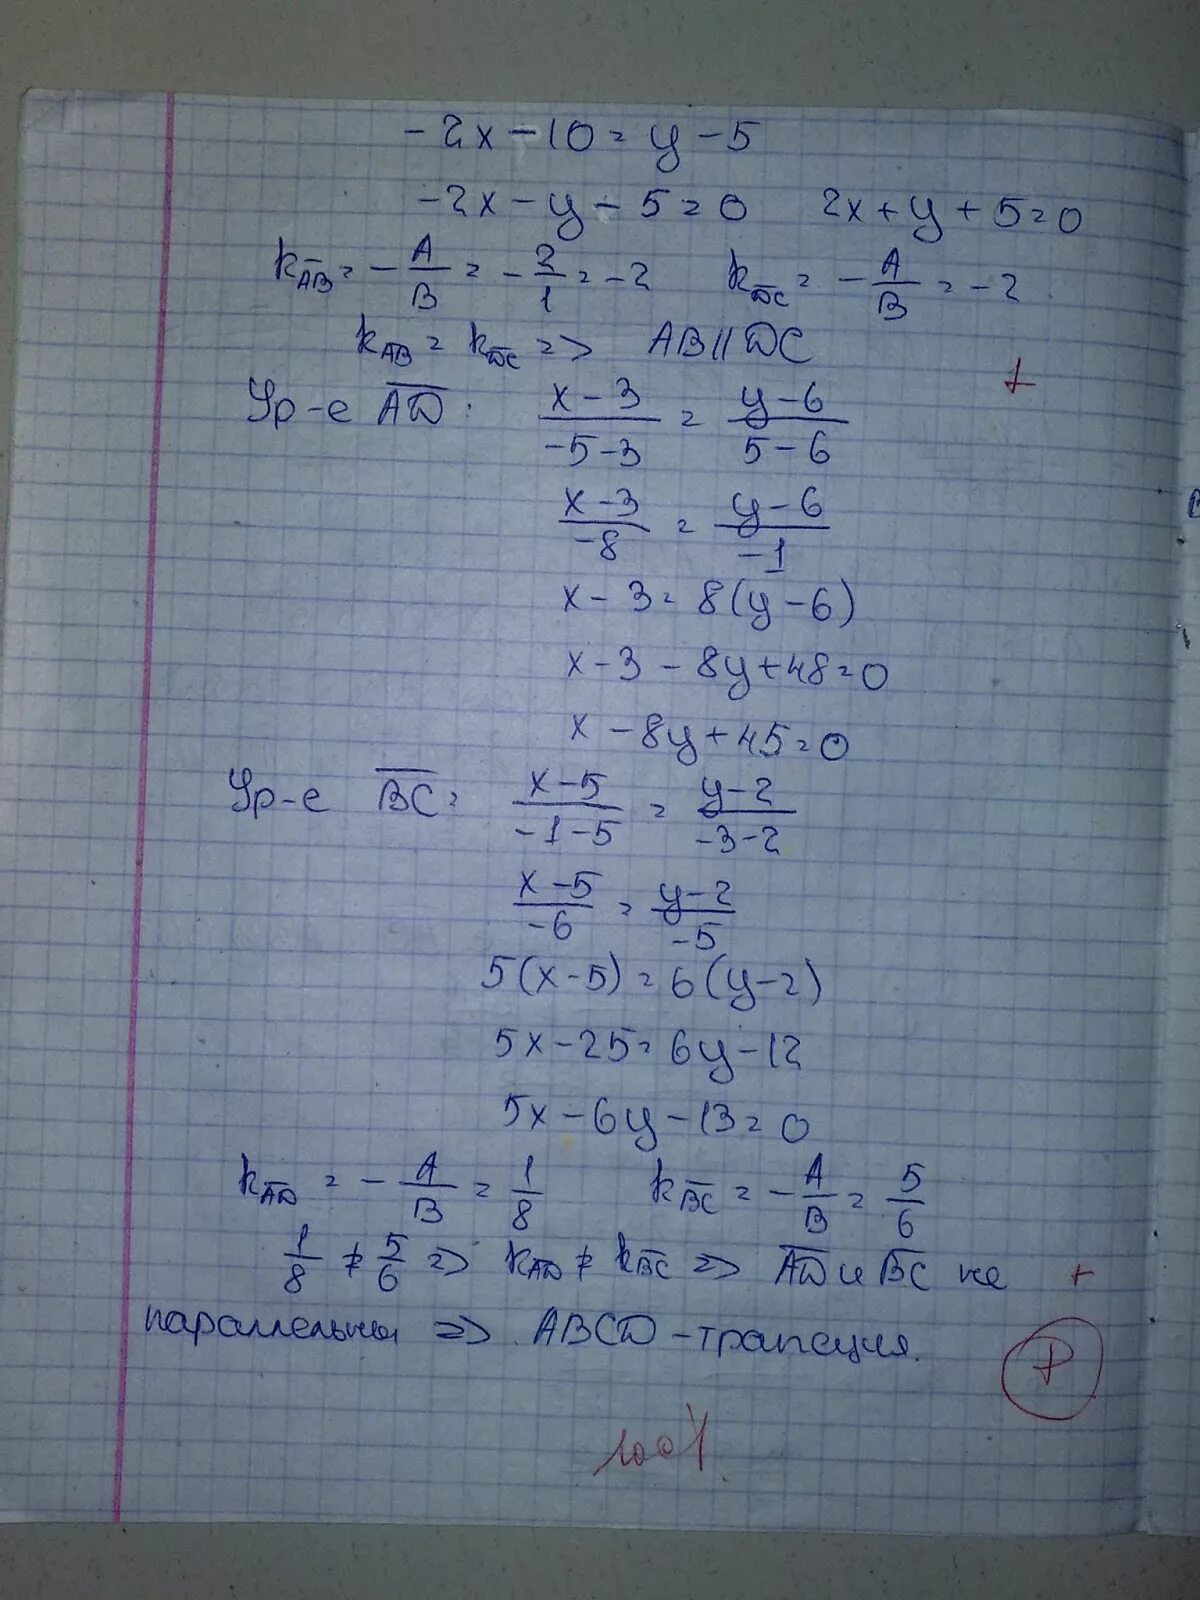 -2x-10=y-5
-2x-y-5=0 2x+y+5=0
k_AB = -A/B = -2/1 = -2 k_DC = -A/B = -2
k_AB = k_DC => AB || DC
+
Ур-е AD: (x-3)/(-5-3) = (y-6)/(5-6)
(x-3)/(-8) = (y-6)/(-1)
x-3=8(y-6)
x-3-8y+48=0
x-8y+45=0
Ур-е BC: (x-5)/(-1-5) = (y-2)/(-3-2)
(x-5)/(-6) = (y-2)/(-5)
5(x-5)=6(y-2)
5x-25=6y-12
5x-6y-13=0
k_AD = -A/B = 1/8 k_BC = -A/B = 5/6
1/8 ≠ 5/6 => k_AD ≠ k_BC => AD и BC не +
параллельны => ABCD - трапеция.
Р
100%